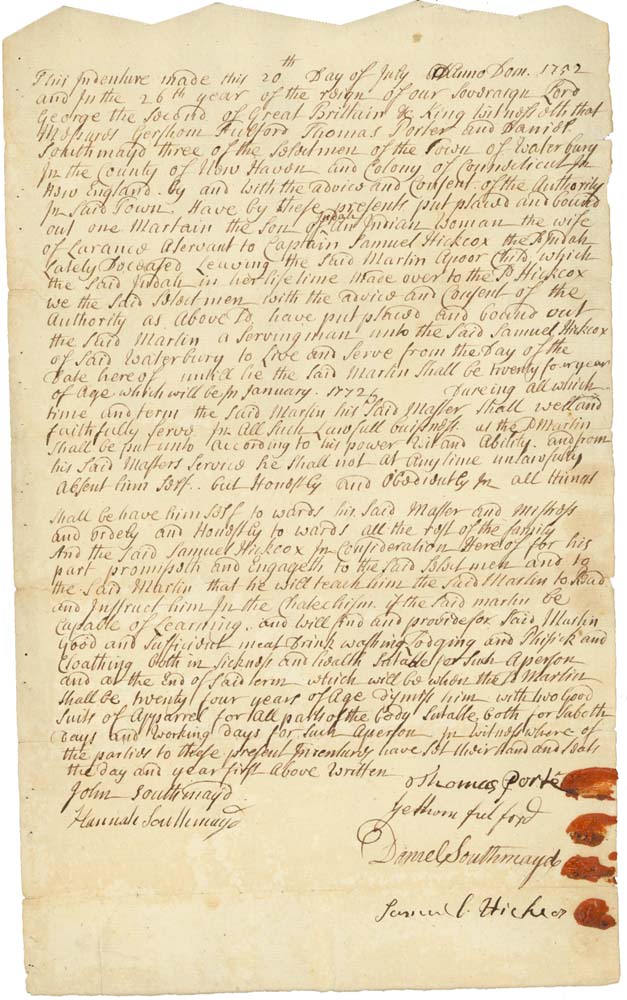 This Indenture made this 20th Day of July Anno Dom. 1752
and In the 26th year of the reign of our Soveraign Lord
George the Second of Great Brittain &c King Witnesseth that
Messurs Gershom Fulford Thomas Porter and Daniel
Southmayd three of the Selectmen of the Town of Waterbury
In the County of New Haven and Colony of Connecticut In
New England. by and with the advice and Consent of the Authority
In Said Town. Have by these presents put placed and bound
out one Martain the Son of Judah an Indian Woman the wife
of Larance a Servant to Captain Samuel Hickcox the sd Judah
Lately Deceased Leaving the Said Martin a poor Child, which
the Said Judah in her lifetime made over to the sd Hickcox
we the Said Selectmen with the advice and Consent of the
Authority as Above sd, have put placed and bound out
the Said Martin a Servingman unto the Said Samuel Hickcox
of Said Waterbury to Live and Serve from the Day of the
Date hereof untill he the Said Martin Shall be twenty four year
of Age which will be In January. 1772/3 Dureing all which
time and term the Said Martin his Said Master Shall well and
faithfully Serve In All Such Lawfull buisness as the sd Martin
Shall be put unto according to his power Wit and Ability. and from
his Said Masters Service he Shall not at Anytime unlawfully
absent him Self.. but Honestly and Obediently In all things
Shall be have him Self to wards his Said Master and Mistress
and ordely and Honestly to wards all the rest of the family
And the Said Samuel Hickcox In Consideration Hereof for his
part promisseth and Engageth to the Said Selectmen and to
the Said Martin that he will teach him the Said Martin to Read
and Instruct him In the Chatechism. if the Said martin be
Capable of Learning. and will find and provide for Said Martin
Good and Sufficient meat Drink washing Lodging and Phisick and
Cloathing both in Sickness and health Sutable for Such A person
and at the End of Said term which will be when the sd Martin
Shall be, twenty four years of Age Dymiss him with two Good
Suits of Apparrel for All parts of the body Sutable both for Saboth
Days and working days for Such A person In Witness where of
the parties to these present Inrentures have Set their Hand and Seals
the day and year first Above Written
John Southmayd
Hannah Southmayd
Thomas Porte
Gethom fulford
Daniel Southmayd
Samuel Hickcox